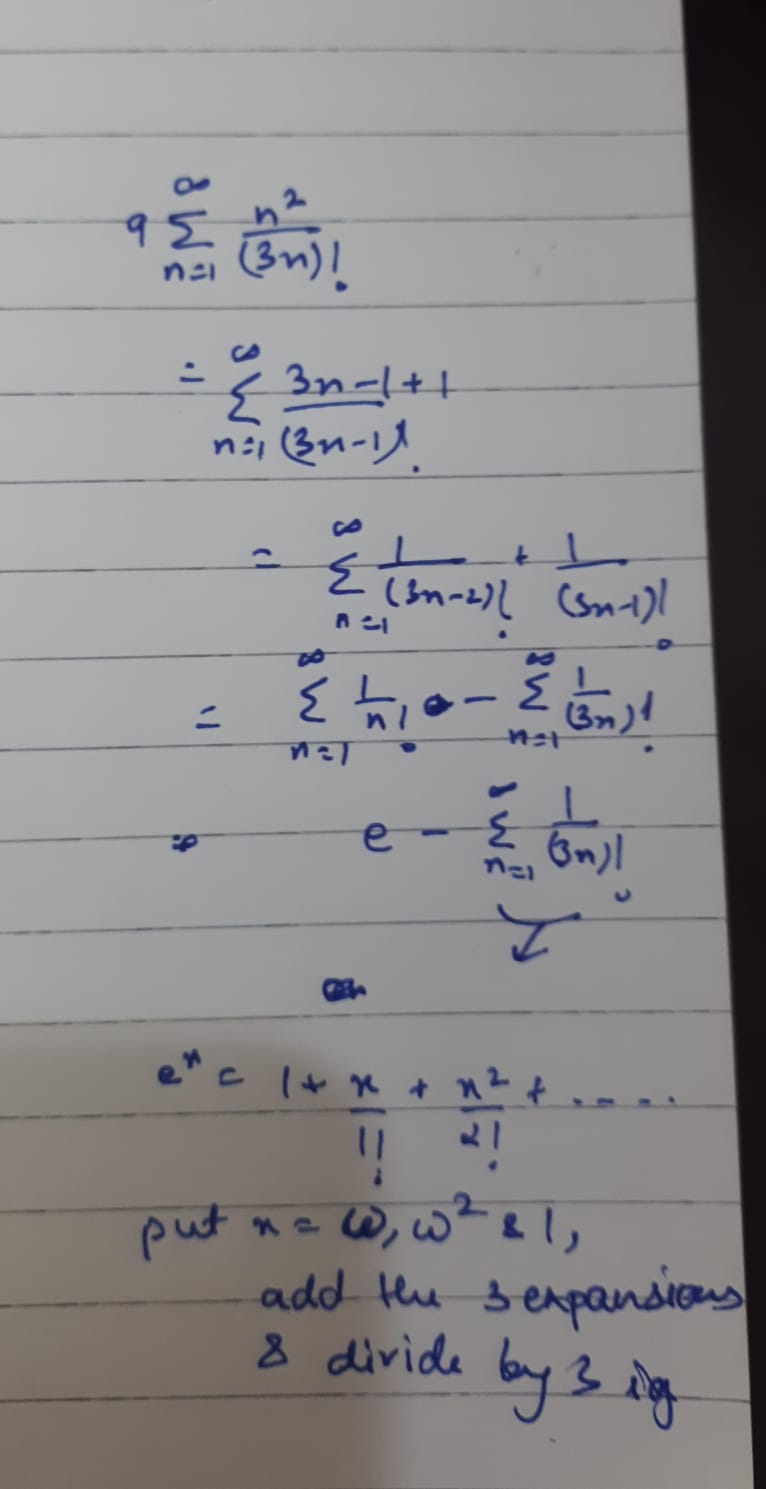 9 ∞ Σ n=1 n² / (3n)!
= ∞ Σ n=1 3n-1+1 / (3n-1)!
= ∞ Σ n=1 1 / (3n-2)! + 1 / (3n-1)!
= ∞ Σ n=1 1 / n! - ∞ Σ n=1 1 / (3n)!
⇒ e - ∞ Σ n=1 1 / (3n)!
eˣ = 1 + x / 1! + x² / 2! + .....
put x = ω, ω² & 1,
add the 3 expansions
& divide by 3 ig